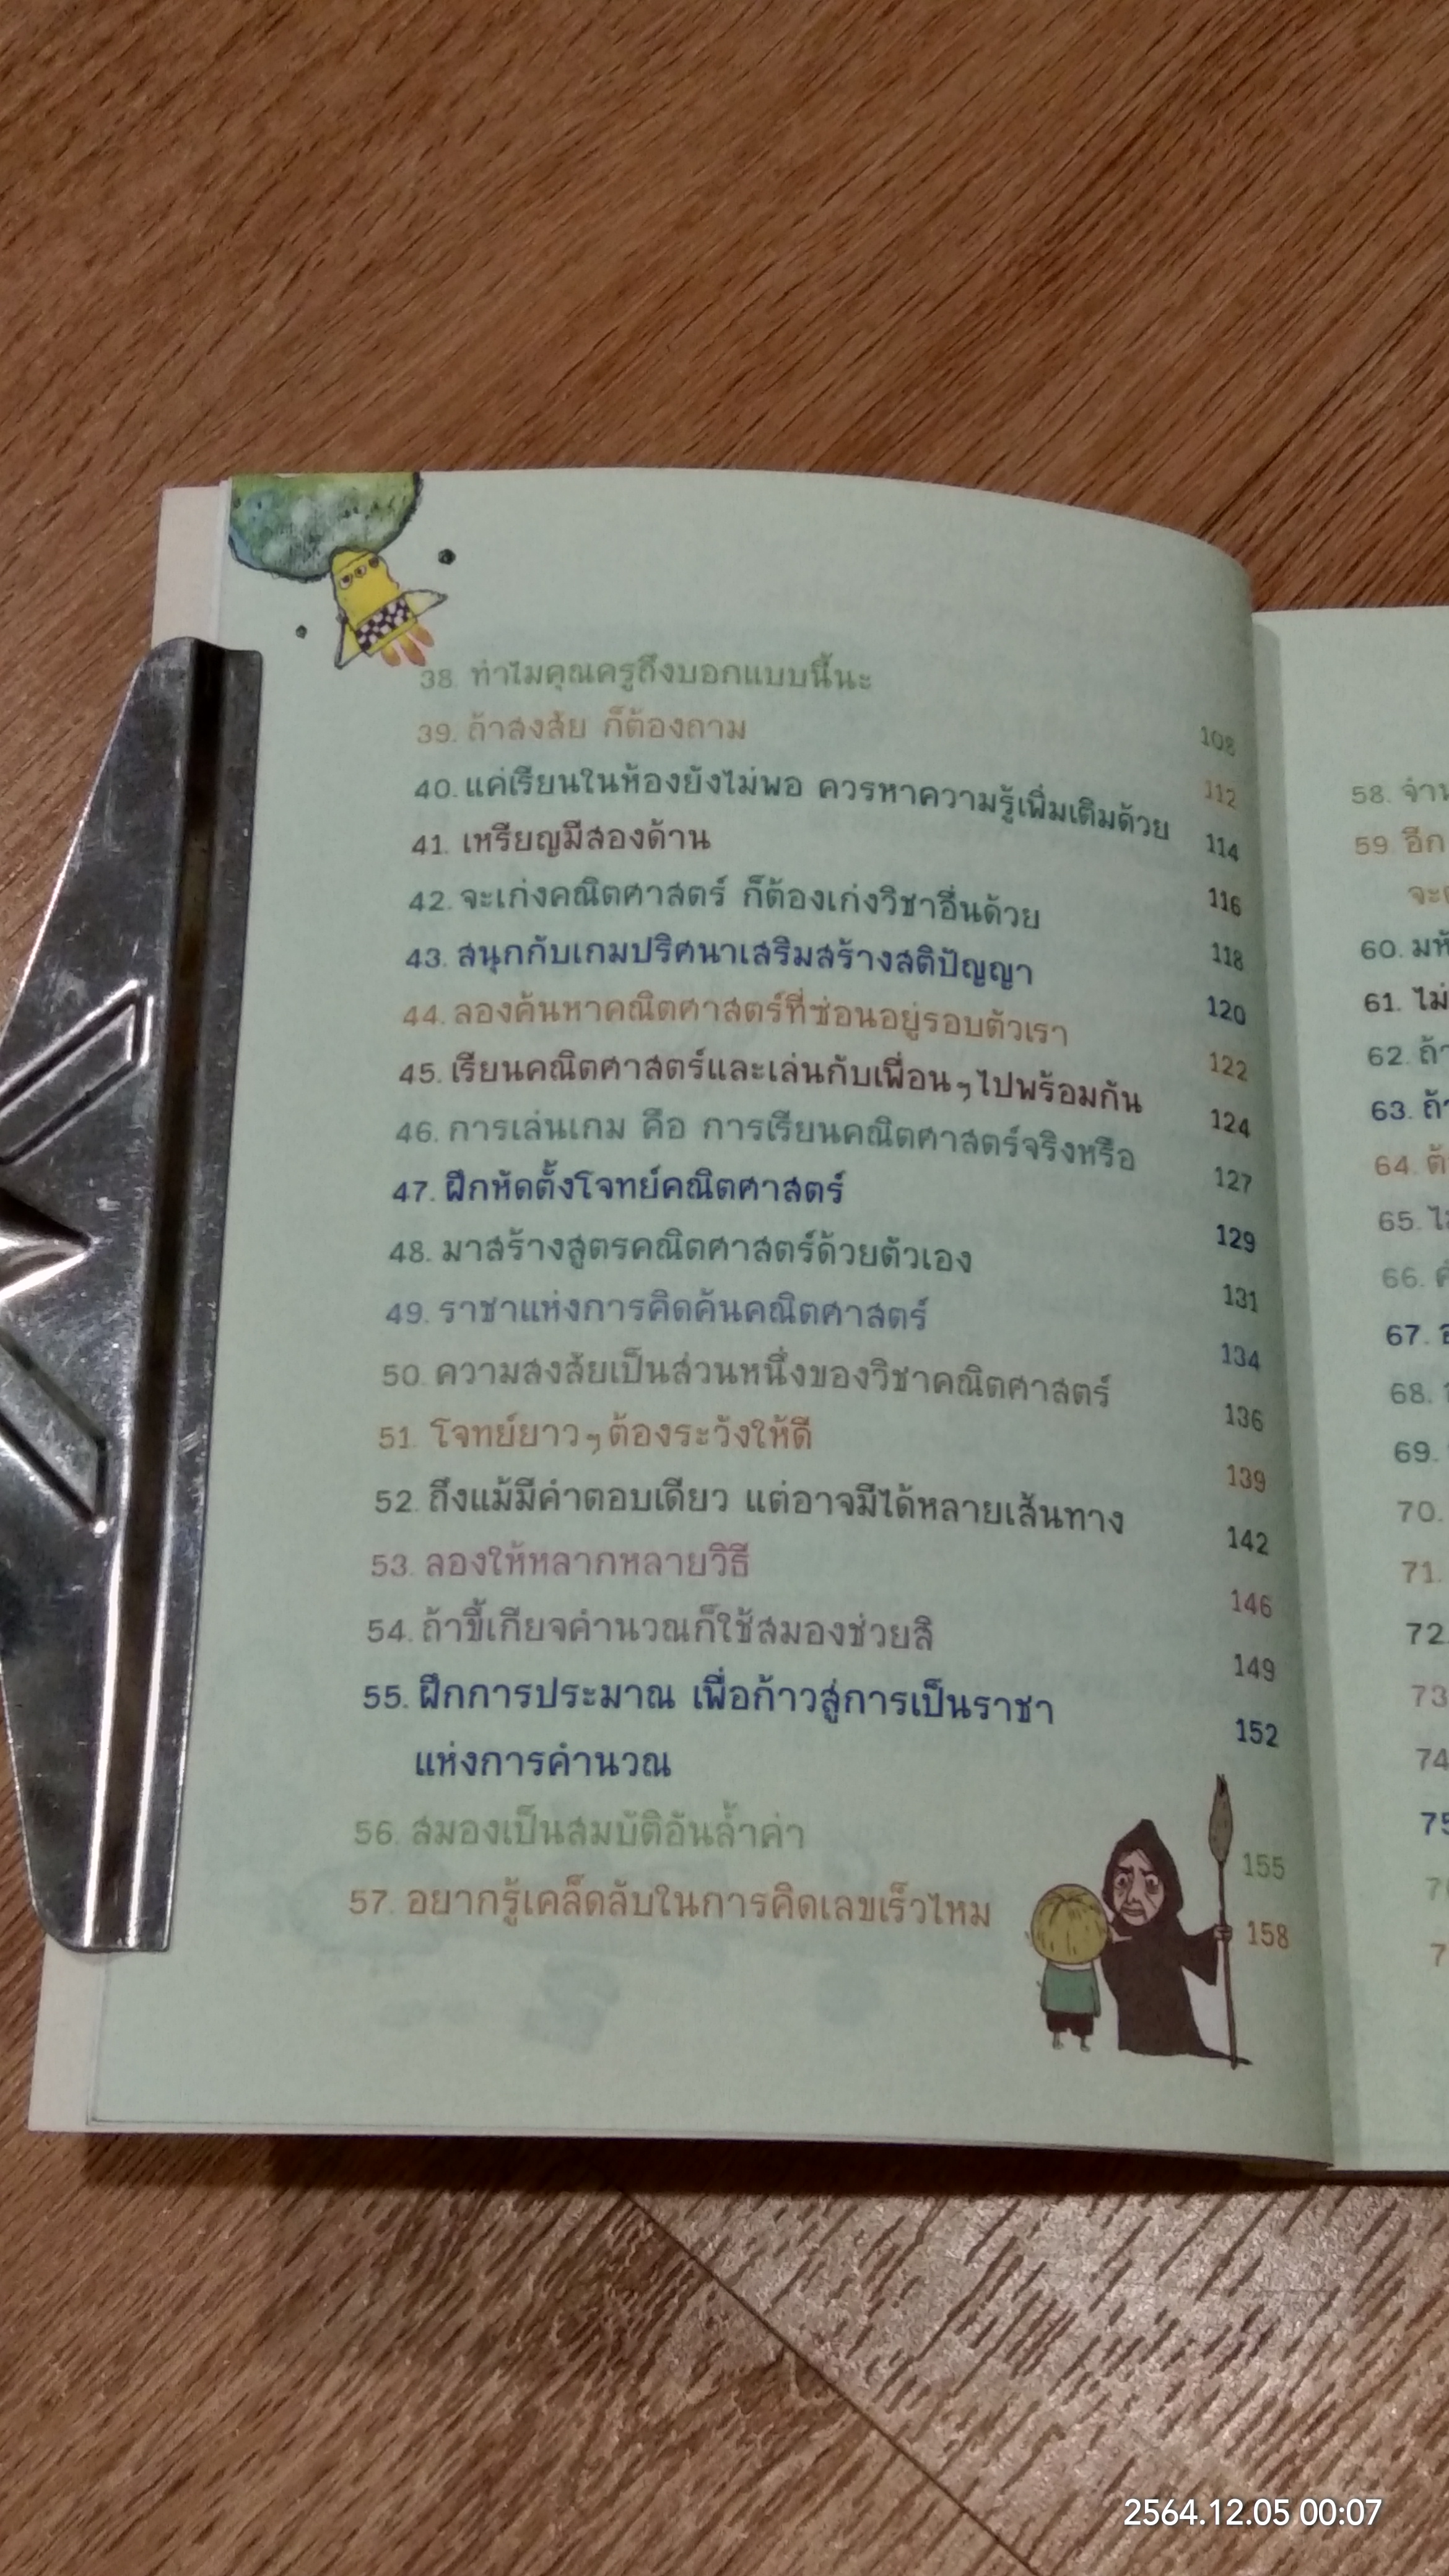 38. ทำไมคุณครูถึงบอกแบบนี้นะ 108
39. ถ้าสงสัย ก็ต้องถาม 112
40. แค่เรียนในห้องยังไม่พอ ควรหาความรู้เพิ่มเติมด้วย 114
41. เหรียญมีสองด้าน 116
42. จะเก่งคณิตศาสตร์ ก็ต้องเก่งวิชาอื่นด้วย 118
43. สนุกกับเกมปริศนาเสริมสร้างสติปัญญา 120
44. ลองค้นหาคณิตศาสตร์ที่ซ่อนอยู่รอบตัวเรา 122
45. เรียนคณิตศาสตร์และเล่นกับเพื่อนๆไปพร้อมกัน 124
46. การเล่นเกม คือ การเรียนคณิตศาสตร์จริงหรือ 127
47. ฝึกหัดตั้งโจทย์คณิตศาสตร์ 129
48. มาสร้างสูตรคณิตศาสตร์ด้วยตัวเอง 131
49. ราชาแห่งการคิดค้นคณิตศาสตร์ 134
50. ความสงสัยเป็นส่วนหนึ่งของวิชาคณิตศาสตร์ 136
51. โจทย์ยาวๆต้องระวังให้ดี 139
52. ถึงแม้มีคำตอบเดียว แต่อาจมีได้หลายเส้นทาง 142
53. ลองให้หลากหลายวิธี 146
54. ถ้าขี้เกียจคำนวณก็ใช้สมองช่วยสิ 149
55. ฝึกการประมาณ เพื่อก้าวสู่การเป็นราชา 152
แห่งการคำนวณ
56. สมองเป็นสมบัติอันล้ำค่า 155
57. อยากรู้เคล็ดลับในการคิดเลขเร็วไหม 158
58.
59. อีก
60.
61. ไม่
62. ถ้า
63. ถ้า
64.
65.
66.
67.
68.
69.
70.
71.
72.
73
74
75
2564.12.05 00:07